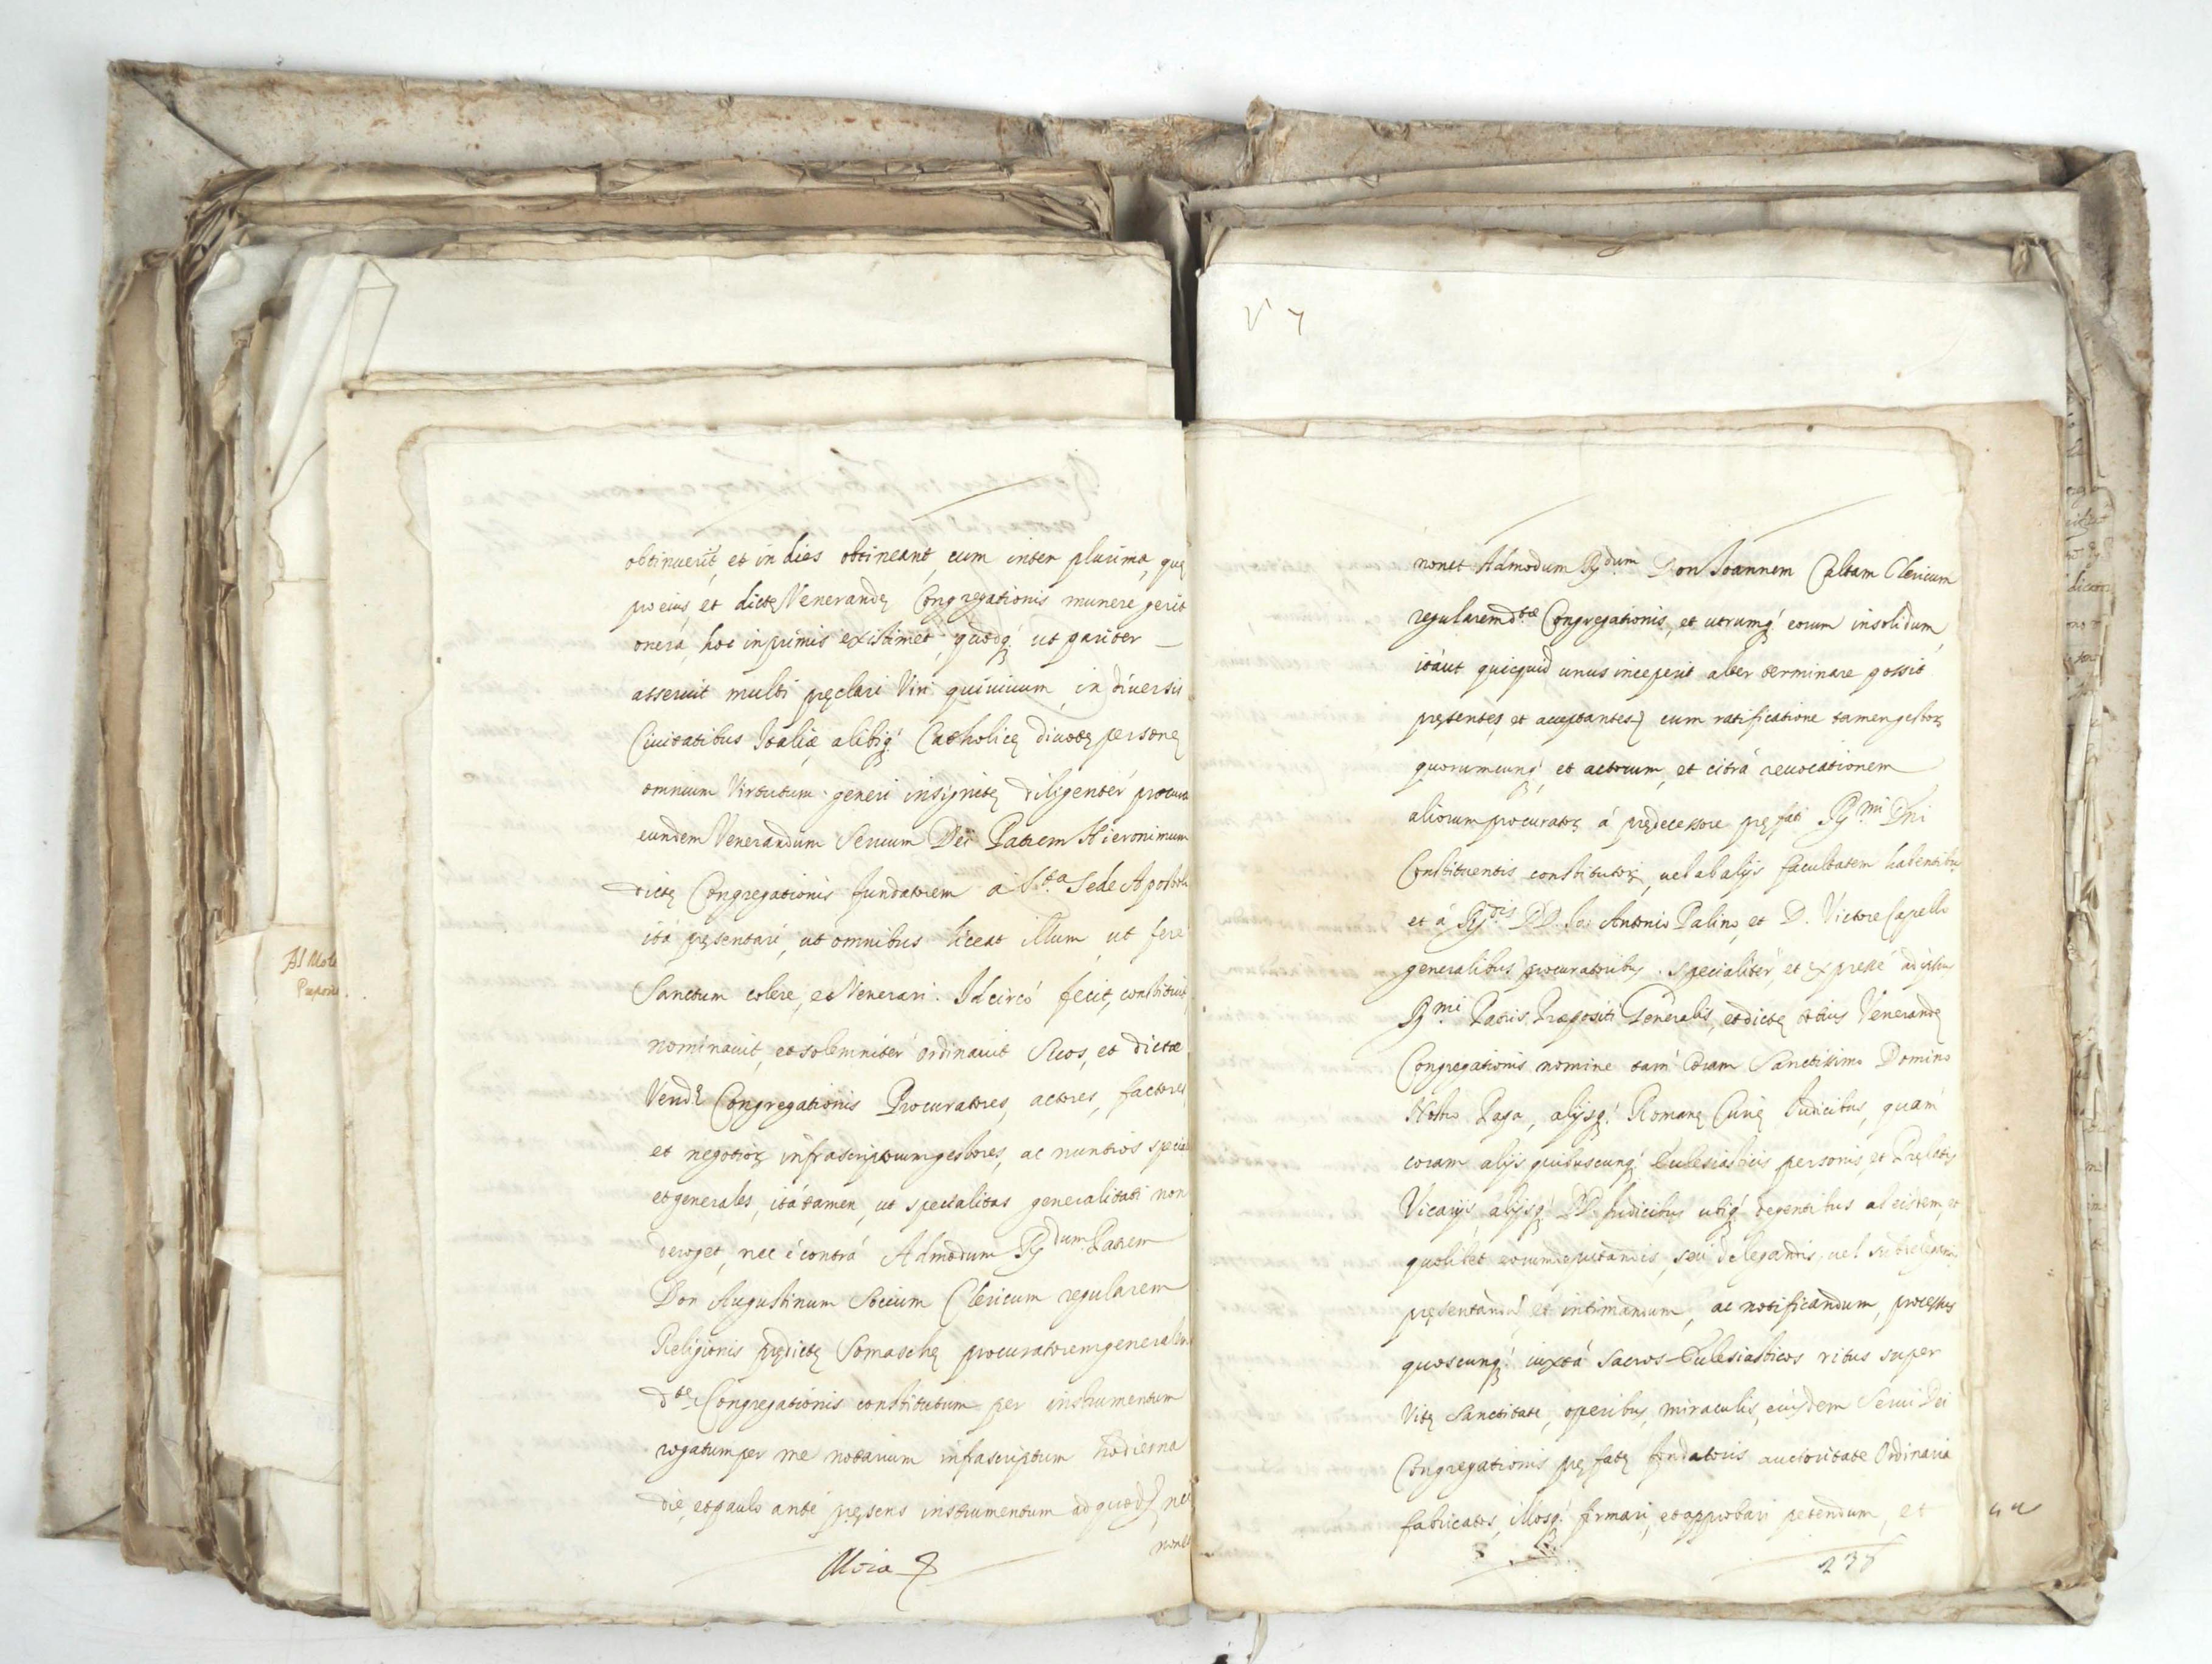 obtinuerit, et in dies obtineant, cum inter plurima, quę
pro eius, et dictę Venerandę Congregationis munere gerit
onera, hoc inprimis existimet, quodq; ut pariter
asseruit multi pręclari Viri quiuium, in diuersis
Ciuitatibus Italiæ, alibiq; Catholicę diuotę personę
omnium Virtutum generi insignitę diligentér procura
eundem Venerandum Seruum Dei Patrem Hieronimum
dictę Congregationis fundatorem a S.ta Sede Apostoli
ità pręsentari, ut omnibus liceat illum, ut feré
Sanctum colere, et Venerari. Idcircó fecit, constituit,
nominauit, et solemnitér ordinauit Suos, et dictæ
Vendę Congregationis Procuratores, actores, factores,
et negotioꝝ infrascriptorum gestores, ac nuntios special
et generales, ità tamen, ut specialitas generalitati non
deroget, nec é contrá Admodum Rdum Patrem
Don Augustinum Socium Clericum regularem
Religionis prędictę Somaschę procuratorem generalem
dtę Congregationis constitutum per instrumentum
rogatum per me notarium infrascriptum hodierna
die, et paulo anté pręsens instrumentum ad quod, nec
nonet
Moia
V 7
nonet Admodum Rdum Don Ioannem Caltam Clericum
regularem dtæ Congregationis, et utrumq; eorum insolidum,
itàut quicquid unus inceperit alter terminare possit
pręsentes, et acceptantes) cum ratificatione tamen gestoꝝ
quorumcunq; et actorum, et citrà reuocationem
aliorum procuratoꝝ á prędecessore pręfati Rmi Dni
Constituentis constitutoꝝ, uel ab alijs facultatem habentibus
et á Rdis DD. Io: Antonio Palino, et D. Victore Capello
generalibus procuratoribus. Specialitér, et expressé ad ipsius
Rmi Patris Præpositi Generalis, et dictę totius Venerandę
Congregationis nomine tam coram Sanctissimo Domino
Nostro Papa, alijsq; Romanę Curię Iudicibus, quam
coram alijs quibuscunq; Ecclesiasticis personis, et Pręlatis
Vicarijs, alijsq; DD. Iudicibus ubiq; degentibus ab eisdem, et
quolibet eorum deputandis, seu delegandis, uel subdelegandis
pręsentandum et intimandum, ac notificandum, processus
quoscunq; iuxtà Sacros Ecclesiasticos ritus super
Vitę Sanctitate, operibus, miraculis, eiusdem Serui Dei
Congregationis pręfatę fundatoris auctoritate Ordinaria
fabricatos, illosq; firmari, et approbari petendum, et